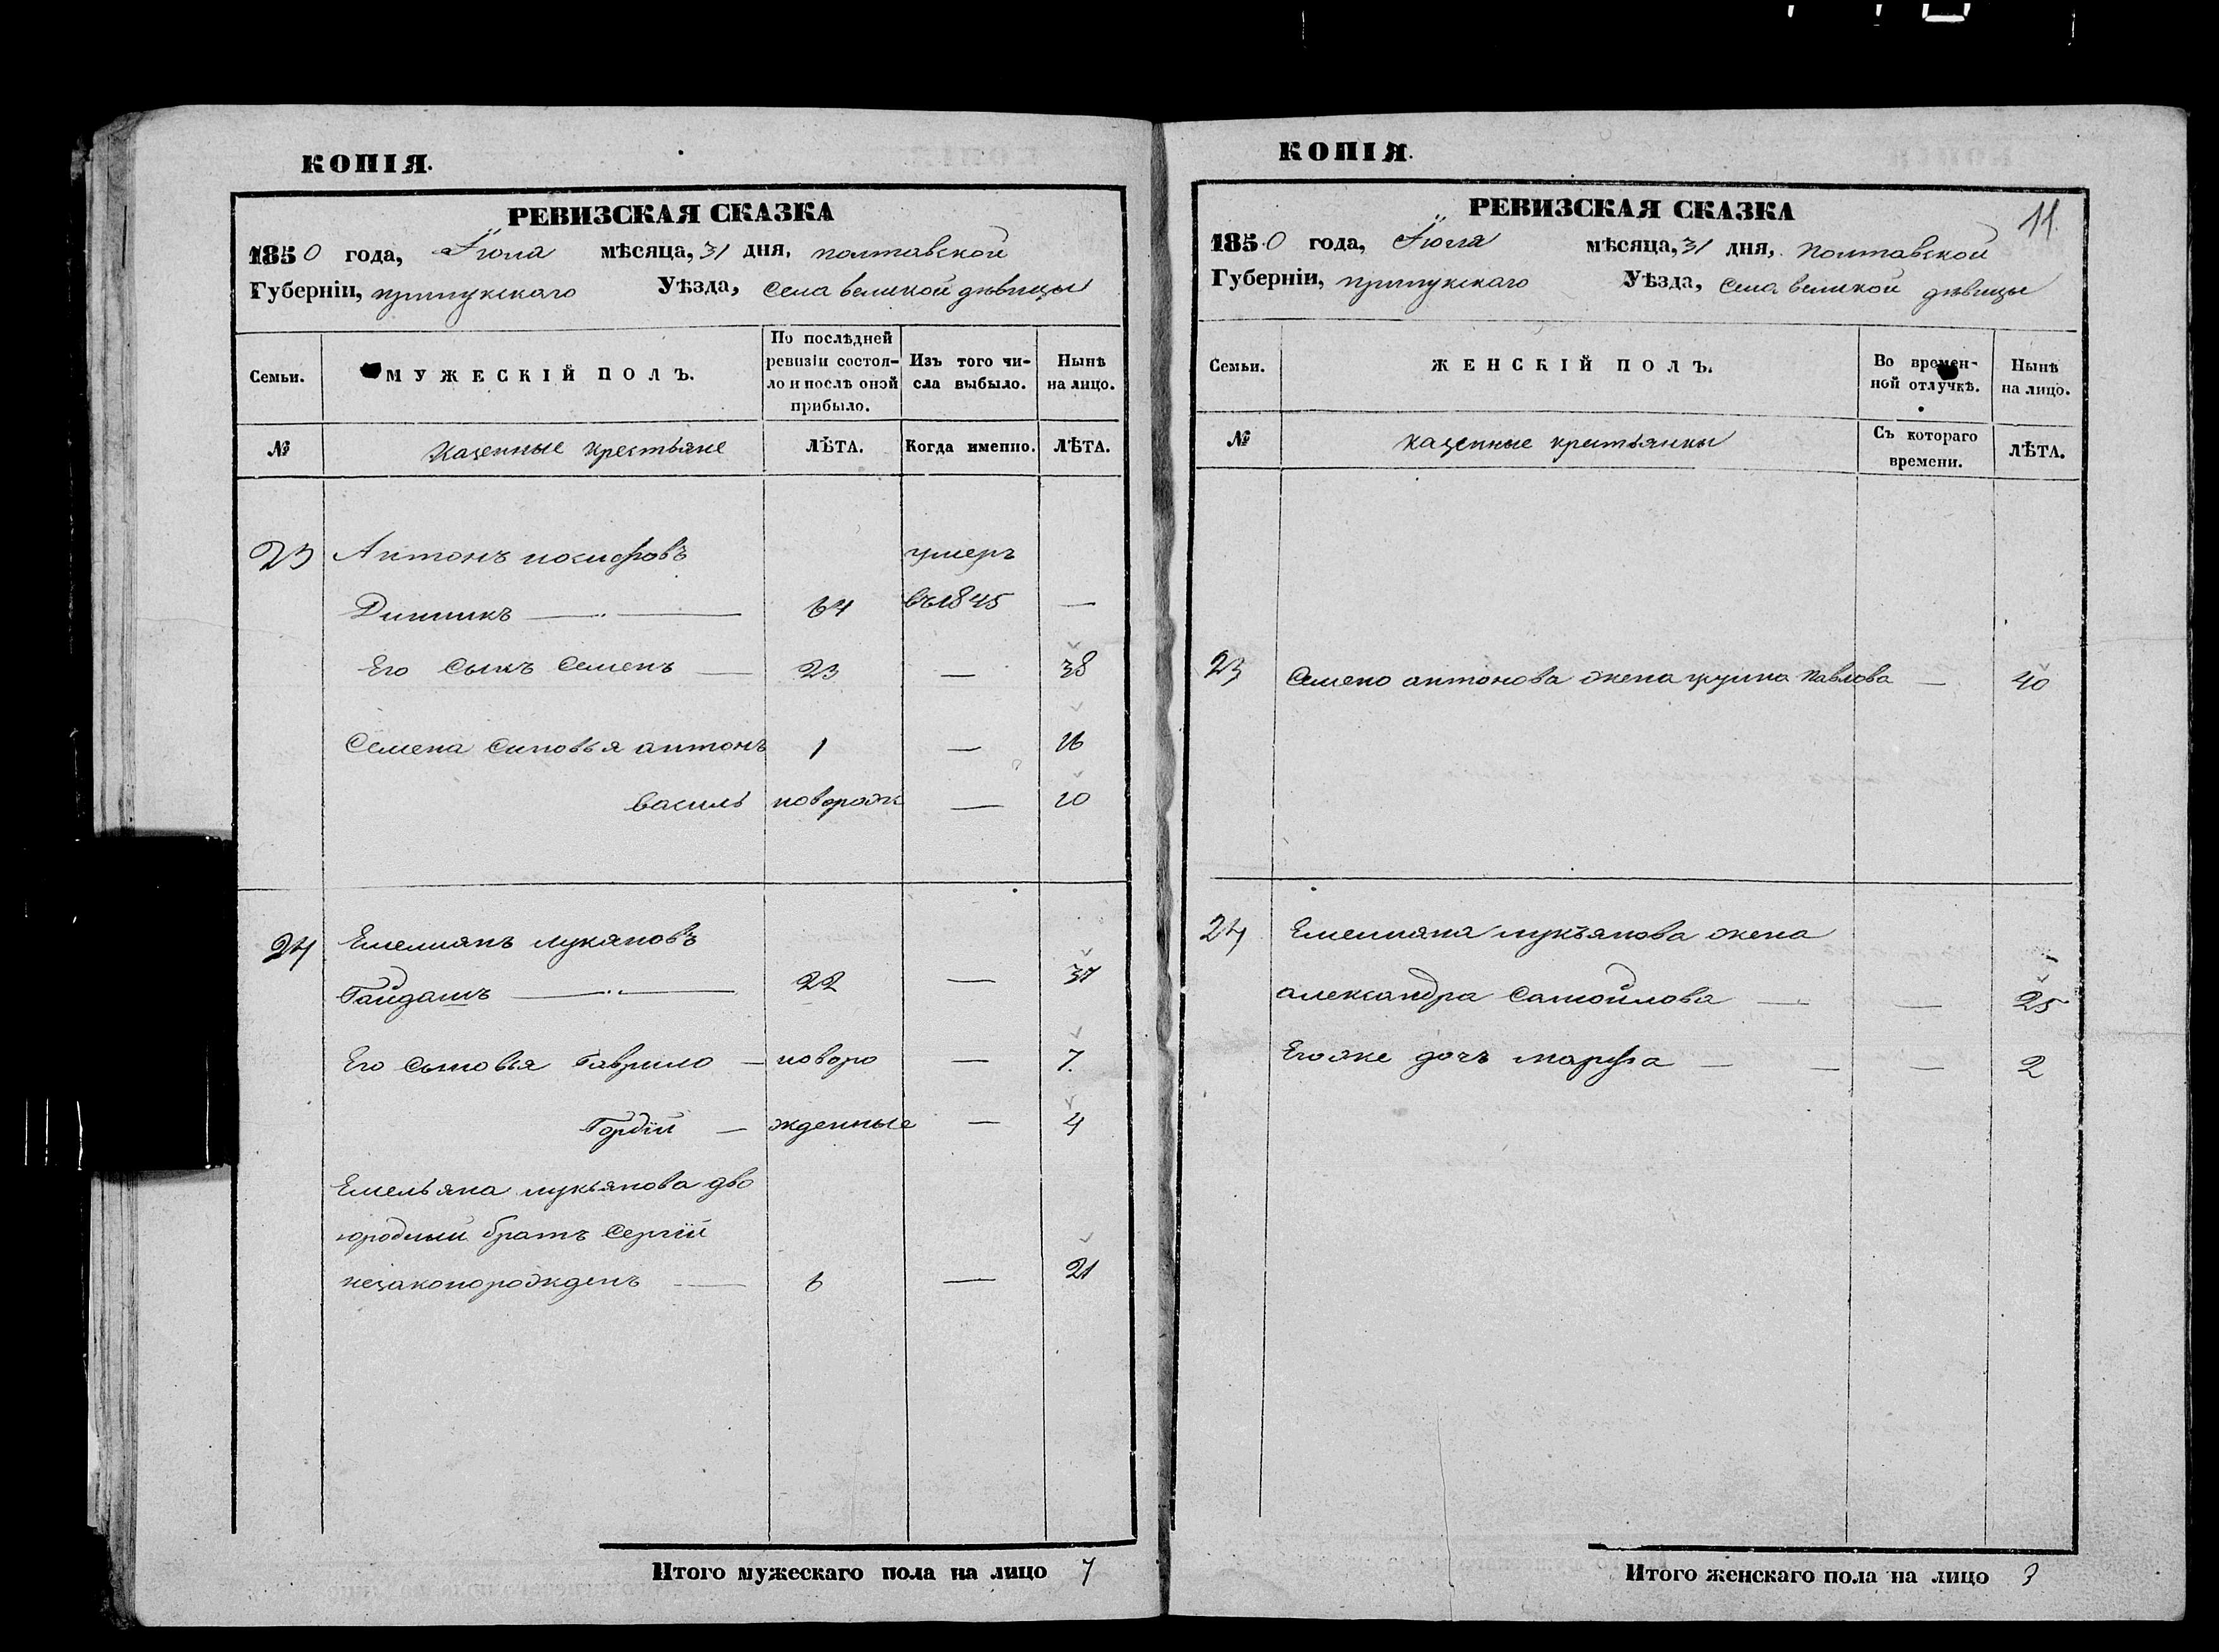 КОПІЯ.
РЕВИЗСКАЯ СКАЗКА
1850 года, Іюля мѣсяца, 31 дня, полтавской
Губерніи, прилукскаго Уѣзда, села великой дѣвицы
Семьи.
МУЖЕСКІЙ ПОЛЪ.
По послѣдней
ревизіи состоя-
ло и послѣ оной
прибыло.
Изъ того чи-
сла выбыло.
Нынѣ
на лицо.
№
казенные крестьяне
ЛѢТА.
Когда именно.
ЛѢТА.
23 Антонъ никифровъ умеръ
64 въ 1845 —
Его Сынъ Семенъ — 23 — 38
Семена Синовья антонъ 1 — 16
василь новорожд — 10
24 Емелианъ лукяновъ
Гайдашъ — 22 — 37
Его Сыновья Гаврило — новоро — 7.
Гордій — жденные — 4
Емельяна лукьянова дво
юродный братъ Сергій
незаконорожденъ — 6 — 21
Итого мужескаго пола на лицо 7
КОПІЯ.
11.
РЕВИЗСКАЯ СКАЗКА
1850 года, Іюля мѣсяца, 31 дня, полтавской
Губерніи, прилукскаго Уѣзда, села великой дѣвицы
Семьи.
ЖЕНСКІЙ ПОЛЪ.
Во времен-
ной отлучкѣ.
Нынѣ
на лицо.
№
казенные крестьянки
Съ котораго
времени.
ЛѢТА.
23 Семено антонова жена Павлова — 40
24 Емелиана лукъянова жена
александра Самойлова — — 25
Егоже дочъ марфа — — — 2
Итого женскаго пола на лицо 3